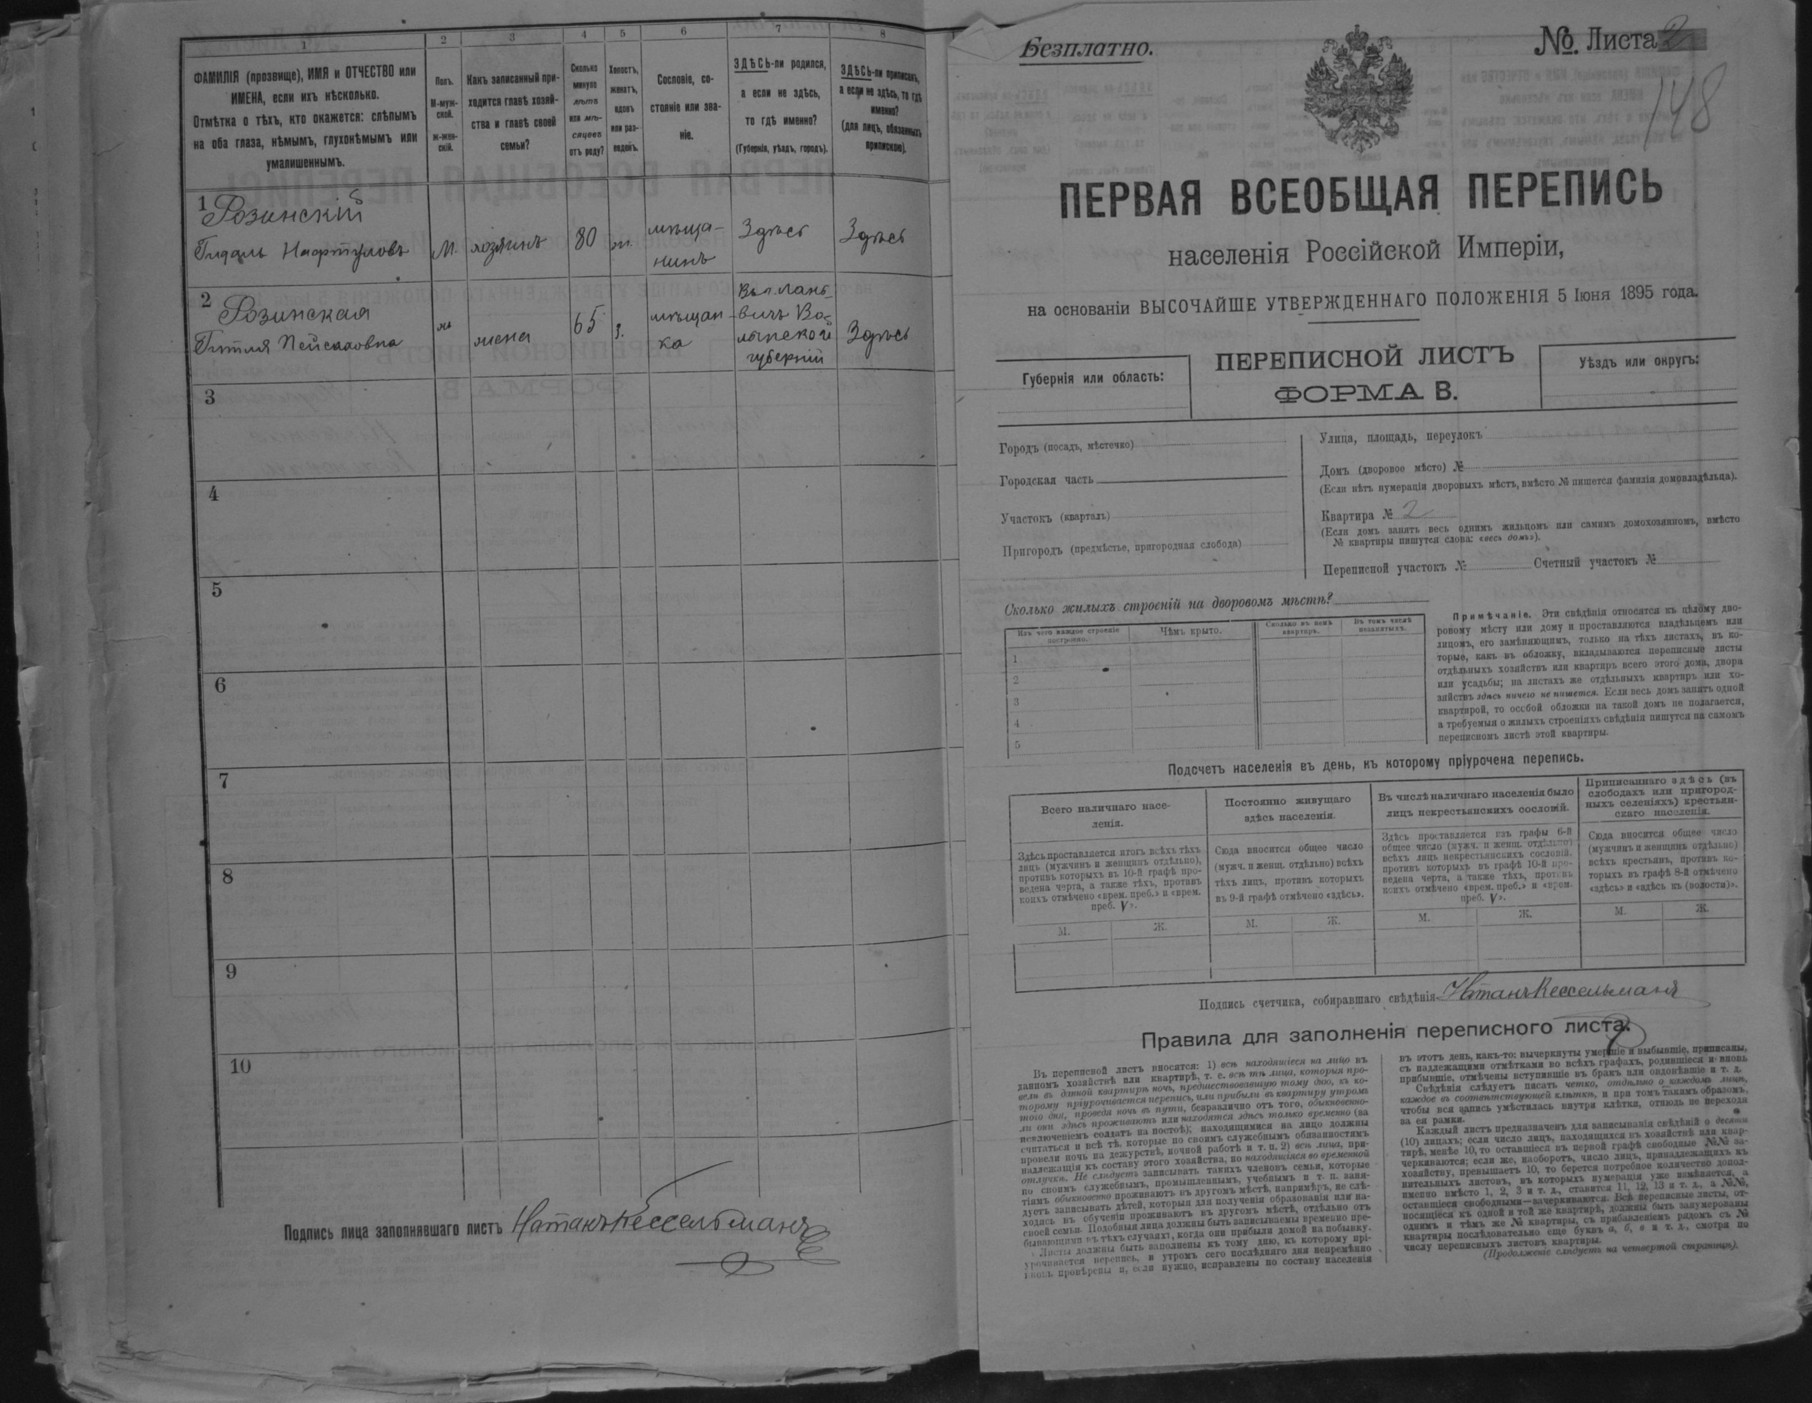 1
2
3
4
5
6
7
8
ФАМИЛІЯ (прозвище), ИМЯ и ОТЧЕСТВО или
ИМЕНА, если ихъ нѣсколько.
Отмѣтка о тѣхъ, кто окажется: слѣпымъ
на оба глаза, нѣмымъ, глухонѣмымъ или
умалишеннымъ.
Полъ.
М-муж-
ской.
ж-жен-
скій.
Какъ записанный при-
ходится главѣ хозяй-
ства и главѣ своей
семьи?
Сколько
минуло
лѣтъ
или мѣ-
сяцевъ
отъ роду?
Холостъ,
женатъ,
вдовъ
или раз-
веденъ.
Сословіе, со-
стояніе или зва-
ніе.
ЗДѢСЬ-ли родился,
а если не здѣсь,
то гдѣ именно?
(Губернія, уѣздъ, городъ).
ЗДѢСЬ-ли приписанъ,
а если не здѣсь, то гдѣ
именно?
(для лицъ, обязанныхъ
припискою).
1
Розинскій
Гидаль Нафтуловъ
М.
хозяинъ
80
ж.
мѣща-
нинъ
Здѣсь
Здѣсь
2
Розинская
жена
65
мѣщан-
ка
губерніи
Здѣсь
3
4
5
6
7
8
9
10
Подпись лица заполнявшаго листъ Натанъ Кессельманъ
Безплатно.
№. Листа 2
148
ПЕРВАЯ ВСЕОБЩАЯ ПЕРЕПИСЬ
населенія Россійской Имперіи,
на основаніи ВЫСОЧАЙШЕ УТВЕРЖДЕННАГО ПОЛОЖЕНІЯ 5 Іюня 1895 года.
Губернія или область:
ПЕРЕПИСНОЙ ЛИСТЪ
ФОРМА В.
Уѣздъ или округъ:
Городъ (посадъ, мѣстечко)
Городская часть
Участокъ (кварталъ)
Пригородъ (предмѣстье, пригородная слобода)
Улица, площадь, переулокъ
Домъ (дворовое мѣсто) №
(Если нѣтъ нумераціи дворовыхъ мѣстъ, вмѣсто № пишется фамилія домовладѣльца).
Квартира № 2
(Если домъ занятъ весь однимъ жильцомъ или самимъ домохозяиномъ, вмѣсто
№ квартиры пишутся слова: «весь домъ»).
Переписной участокъ № Счетный участокъ №
Сколько жилыхъ строеній на дворовомъ мѣстѣ?
Изъ чего каждое строеніе
построено.
Чѣмъ крыто.
Сколько въ немъ
квартиръ.
Въ томъ числѣ
незанятыхъ.
1
2
3
4
5
Примѣчаніе. Эти свѣдѣнія относятся къ цѣлому дво-
ровому мѣсту или дому и проставляются владѣльцемъ или
лицомъ, его замѣняющимъ, только на тѣхъ листахъ, въ ко-
торые, какъ въ обложку, вкладываются переписные листы
отдѣльныхъ хозяйствъ или квартиръ всего этого дома, двора
или усадьбы; на листахъ же отдѣльныхъ квартиръ или хо-
зяйствъ здѣсь ничего не пишется. Если весь домъ занятъ одной
квартирой, то особой обложки на такой домъ не полагается,
а требуемыя о жилыхъ строеніяхъ свѣдѣнія пишутся на самомъ
переписномъ листѣ этой квартиры.
Подсчетъ населенія въ день, къ которому пріурочена перепись.
Всего наличнаго насе-
ленія.
Здѣсь проставляется итогъ всѣхъ тѣхъ
лицъ (мужчинъ и женщинъ отдѣльно),
противъ которыхъ въ 10-й графѣ про-
ведена черта, а также тѣхъ, противъ
коихъ отмѣчено «врем. преб.» и «врем.
преб. V».
Постоянно живущаго
здѣсь населенія.
Сюда вносится общее число
(мужч. и женщ. отдѣльно) всѣхъ
тѣхъ лицъ, противъ которыхъ
въ 9-й графѣ отмѣчено «здѣсь».
Въ числѣ наличнаго населенія было
лицъ некрестьянскихъ сословій.
Здѣсь проставляется изъ графы 6-й
общее число (мужч. и женщ. отдѣльно)
всѣхъ лицъ некрестьянскихъ сословій,
противъ которыхъ въ графѣ 10-й про-
ведена черта, а также тѣхъ, противъ
коихъ отмѣчено «врем. преб.» и «врем.
преб. V».
Приписаннаго здѣсь (въ
слободахъ или пригород-
ныхъ селеніяхъ) крестьян-
скаго населенія.
Сюда вносится общее число
(мужчинъ и женщинъ отдѣльно)
всѣхъ крестьянъ, противъ ко-
торыхъ въ графѣ 8-й отмѣчено
«здѣсь» и «здѣсь въ (волости)».
М. Ж. М. Ж. М. Ж. М. Ж.
Подпись счетчика, собиравшаго свѣдѣнія Натанъ Кессельманъ
Правила для заполненія переписного листа.
Въ переписной листъ вносятся: 1) всѣ находящіеся на лицо въ
данномъ хозяйствѣ или квартирѣ, т. е. всѣ тѣ лица, которыя про-
вели въ данной квартирѣ ночь, предшествовавшую тому дню, къ ко-
торому пріурочивается перепись, или прибыли въ квартиру утромъ
того дня, проведя ночь въ пути, безразлично отъ того, обыкновенно-
ли они здѣсь проживаютъ или находятся здѣсь только временно (за
исключеніемъ солдатъ на постоѣ); находящимися на лицо должны
считаться и всѣ тѣ, которые по своимъ служебнымъ обязанностямъ
провели ночь на дежурствѣ, ночной работѣ и т. п. 2) всѣ лица, при-
надлежащія къ составу этого хозяйства, но находящіяся во временной
отлучкѣ. Не слѣдуетъ записывать такихъ членовъ семьи, которые
по своимъ служебнымъ, промышленнымъ, учебнымъ и т. п. заня-
тіямъ обыкновенно проживаютъ въ другомъ мѣстѣ, напримѣръ, не слѣ-
дуетъ записывать дѣтей, которыя для полученія образованія или на-
ходясь въ обученіи проживаютъ въ другомъ мѣстѣ, отдѣльно отъ
своей семьи. Подобныя лица должны быть записываемы временно пре-
бывающими въ тѣхъ случаяхъ, когда они прибыли домой на побывку.
Листы должны быть заполнены къ тому дню, къ которому прі-
урочивается перепись, и утромъ сего послѣдняго дня непремѣнно
вновь провѣрены и, если нужно, исправлены по составу населенія
въ этотъ день, какъ-то: вычеркнуты умершіе и выбывшіе, приписаны,
съ надлежащими отмѣтками во всѣхъ графахъ, родившіеся и вновь
прибывшіе, отмѣчены вступившіе въ бракъ или овдовѣвшіе и т. д.
Свѣдѣнія слѣдуетъ писать четко, отдѣльно о каждомъ лицѣ,
каждое въ соотвѣтствующей клѣткѣ, и при томъ такимъ образомъ,
чтобы вся запись умѣстилась внутри клѣтки, отнюдь не переходя
за ея рамки.
Каждый листъ предназначенъ для записыванія свѣдѣній о десяти
(10) лицахъ; если число лицъ, находящихся въ хозяйствѣ или квар-
тирѣ, менѣе 10, то оставшіеся въ первой графѣ свободные №№ за-
черкиваются; если же, наоборотъ, число лицъ, принадлежащихъ къ
хозяйству, превышаетъ 10, то берется потребное количество допол-
нительныхъ листовъ, въ которыхъ нумерація уже измѣняется, а
именно вмѣсто 1, 2, 3 и т. д., ставится 11, 12, 13 и т. д., а №№,
оставшіеся свободными—зачеркиваются. Всѣ переписные листы, от-
носящіеся къ одной и той же квартирѣ, должны быть занумерованы
однимъ и тѣмъ же № квартиры, съ прибавленіемъ рядомъ съ №
квартиры послѣдовательно еще буквъ а, б, в и т. д., смотря по
числу переписныхъ листовъ квартиры.
(Продолженіе слѣдуетъ на четвертой страницѣ).